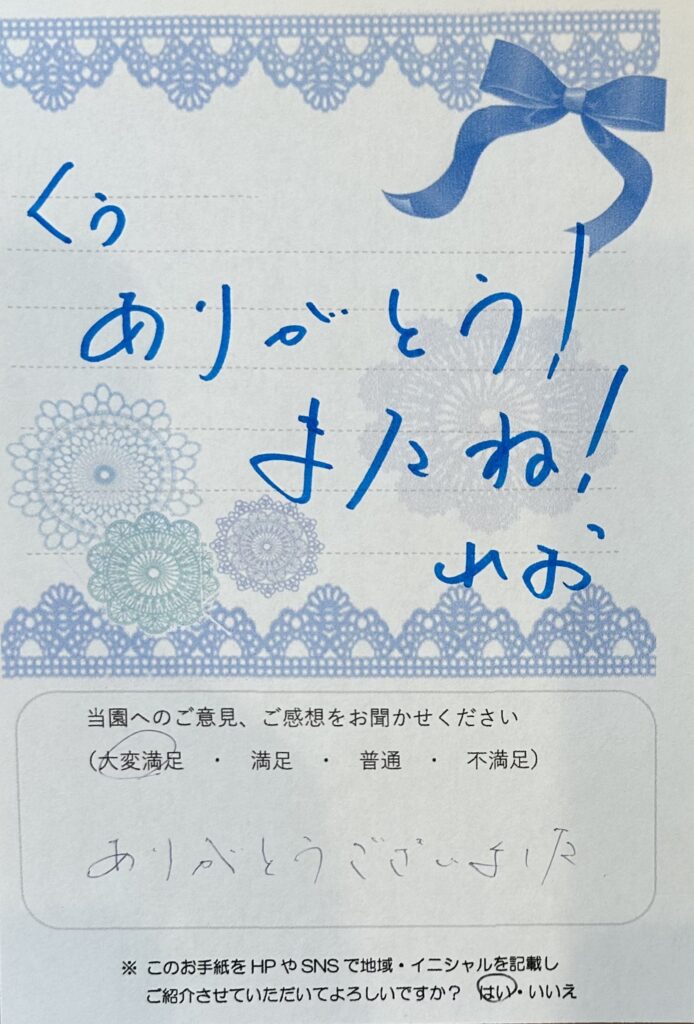 くぅ
ありがとう!
またね!
れお
当園へのご意見、ご感想をお聞かせください
(大変満足 ・ 満足 ・ 普通 ・ 不満足)
ありがとうございました
※ このお手紙をHPやSNSで地域・イニシャルを記載し
ご紹介させていただいてよろしいですか? はい・いいえ